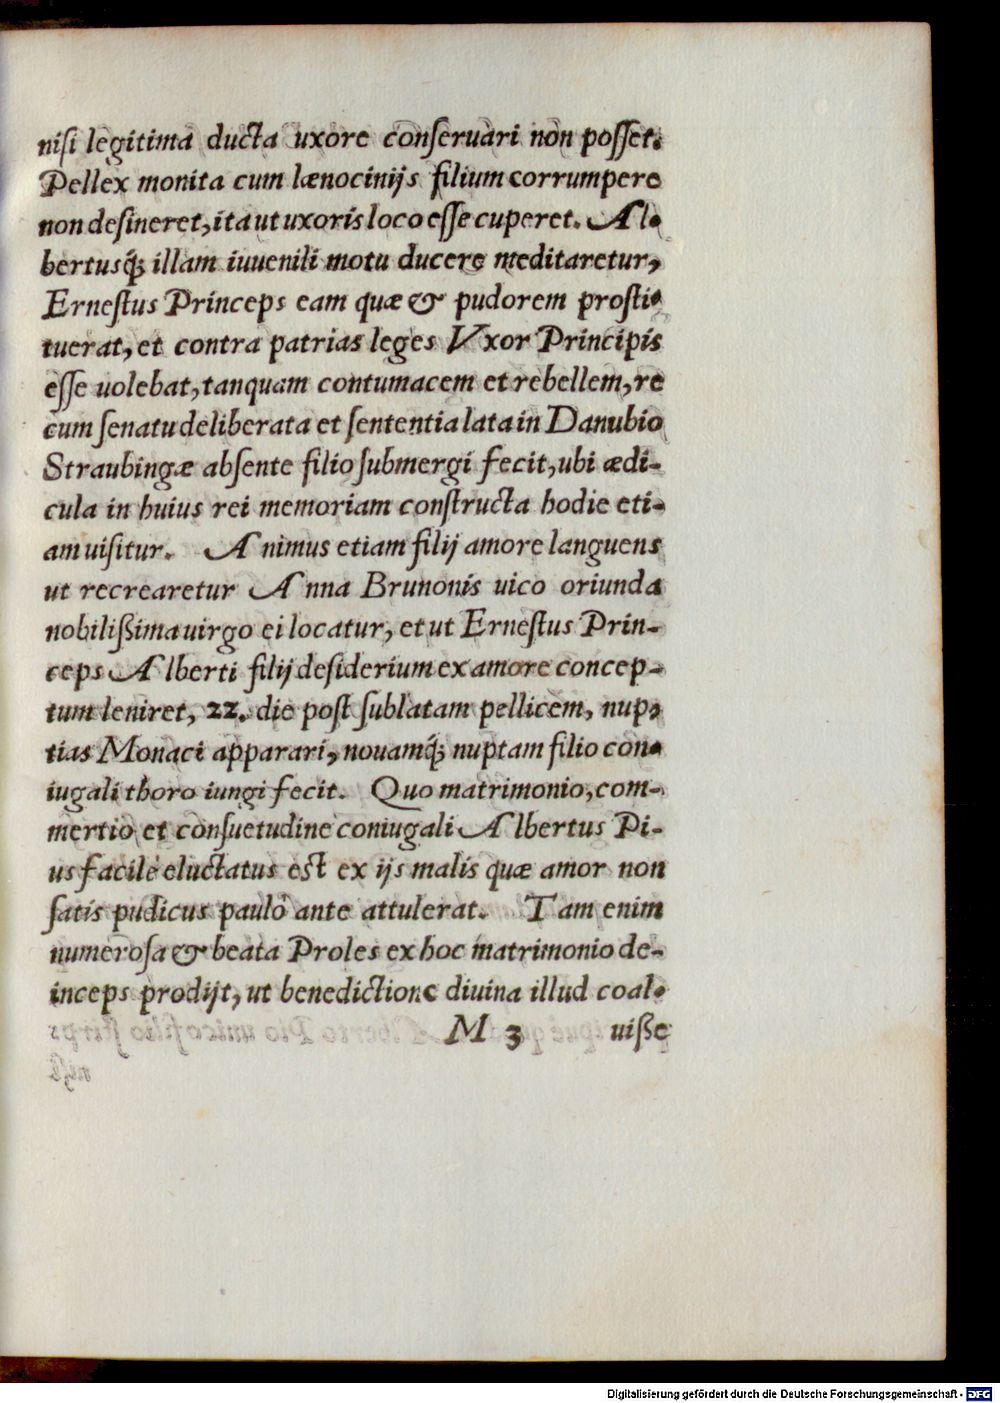 niſi legitima ducta uxore conſeruari non poſſet.
Pellex monita cum lænocinijs filium corrumpere
non deſineret, ita ut uxoris loco eſſe cuperet. Al-
bertusq́; illam iuuenili motu ducere meditaretur,
Erneſtus Princeps eam quæ & pudorem proſti-
tuerat, et contra patrias leges Vxor Principis
eſſe uolebat, tanquam contumacem et rebellem, re
cum ſenatu deliberata et ſententia lata in Danubio
Straubingæ abſente filio ſubmergi fecit, ubi ædi-
cula in huius rei memoriam conſtructa hodie eti-
am uiſitur. Animus etiam filij amore languens
ut recrearetur Anna Brunonis uico oriunda
nobilißima uirgo ei locatur, et ut Erneſtus Prin-
ceps Alberti filij deſiderium ex amore concep-
tum leniret, 22. die poſt ſublatam pellicem, nup-
tias Monaci apparari, nouamq́; nuptam filio con-
iugali thoro iungi fecit. Quo matrimonio, com-
mertio et conſuetudine coniugali Albertus Pi-
us facilè eluctatus eſt ex ijs malis quæ amor non
ſatis pudicus paulò ante attulerat. Tam enim
numeroſa & beata Proles ex hoc matrimonio de-
inceps prodijt, ut benedictione diuina illud coal-
M 3 uiße
Digitalisierung gefördert durch die Deutsche Forschungsgemeinschaft - DFG